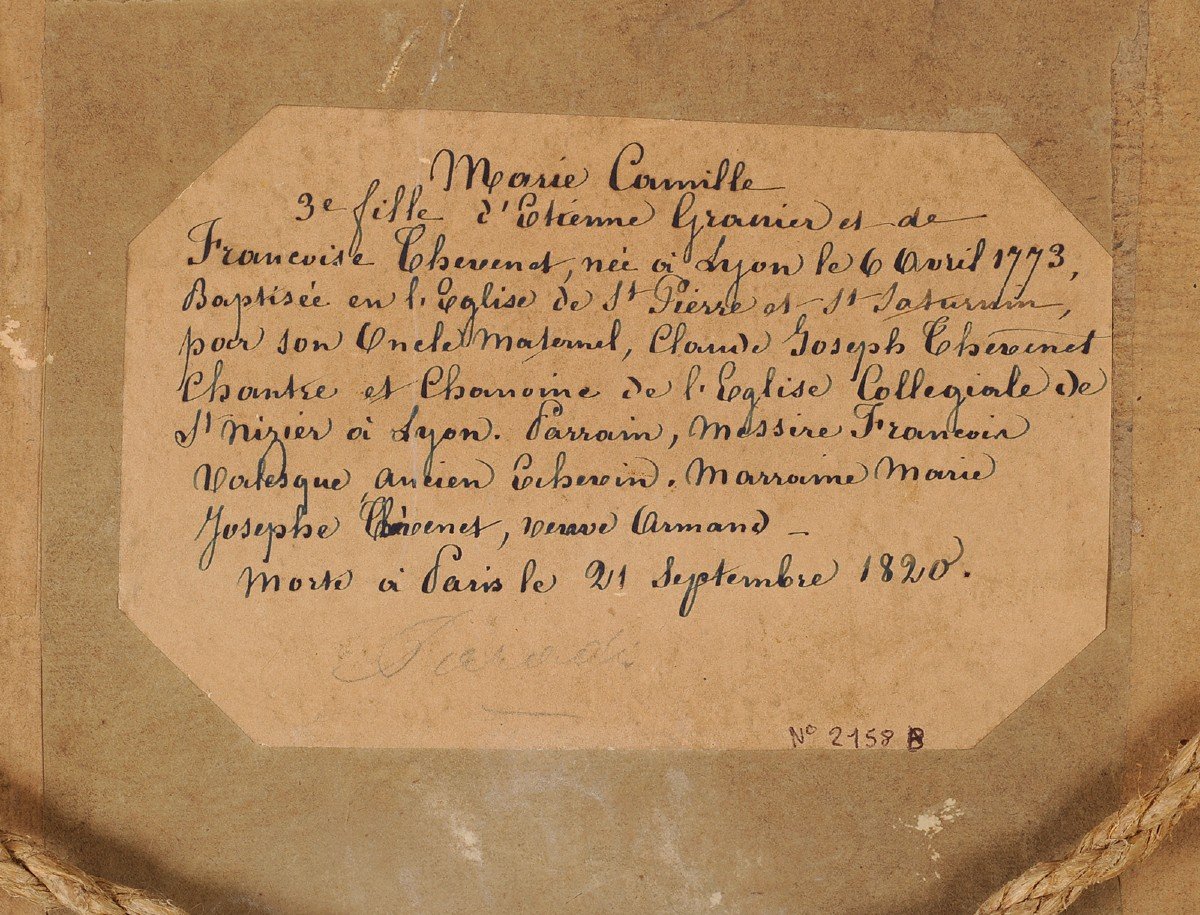 Marie Camille
3e fille d'Etienne Granier et de
Francoise Thevenet, née à Lyon le 6 Avril 1773,
Baptisée en l'Eglise de St Pierre et St Saturnin,
par son Oncle Maternel, Claude Joseph Thevenet
Chantre et Chanoine de l'Eglise Collegiale de
St Nizier à Lyon. Parrain, Messire Francois
Valesque ancien Echevin. Marraine Marie
Josephe Thevenet, veuve Armand —
Morte à Paris le 21 Septembre 1820.
No 2158 B